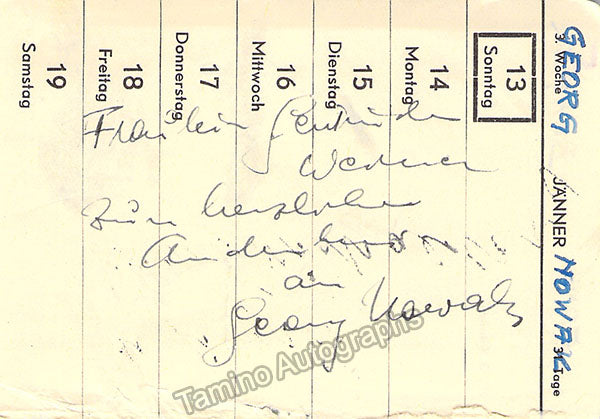 GEORG NOWAK
3. Woche JÄNNER 31 Tage
13 Sonntag
14 Montag
15 Dienstag
16 Mittwoch
17 Donnerstag
18 Freitag
19 Samstag
Fräulein Gertrude
Werner
zum herzlichen
Andenken
an
Georg Nowak
Tamino Autographs